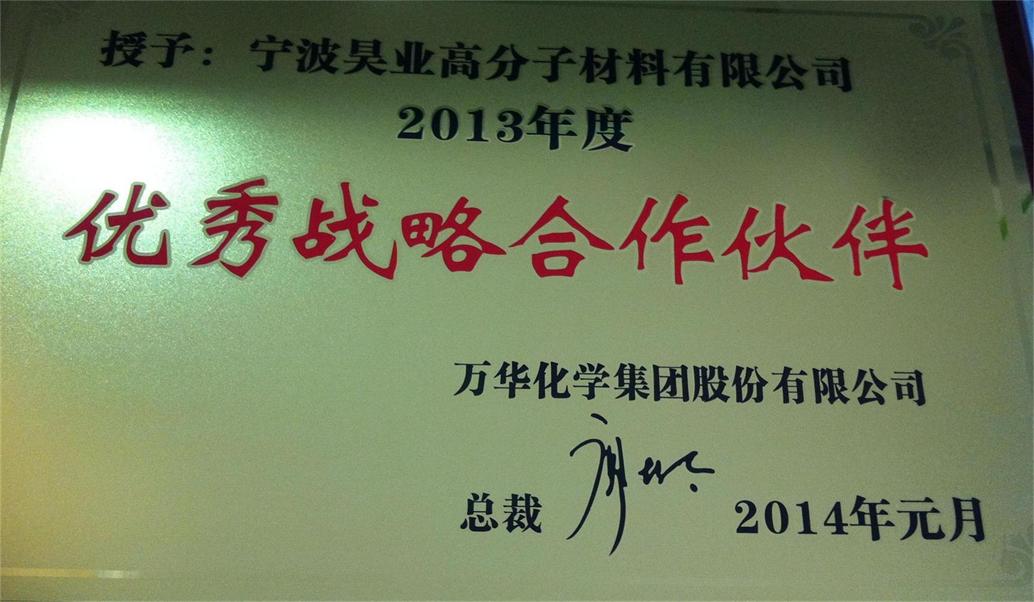 授予：宁波昊业高分子材料有限公司
2013年度
优秀战略合作伙伴
万华化学集团股份有限公司
总裁 2014年元月